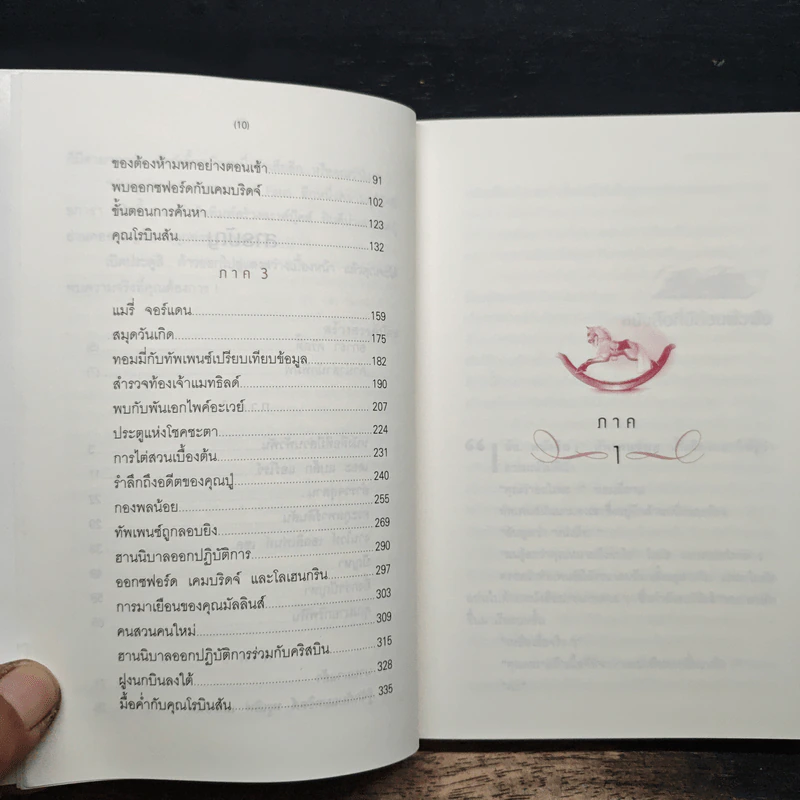 (10)
ของต้องห้ามหกอย่างตอนเช้า 91
พบออกซฟอร์ดกับเคมบริดจ์ 102
ขั้นตอนการค้นหา 123
คุณโรบินสัน 132
ภาค 3
แมรี่ จอร์แดน 159
สมุดวันเกิด 175
ทอมมี่กับทัพเพนซ์เปรียบเทียบข้อมูล 182
สำรวจท้องเจ้าแมทธิลด์ 190
พบกับพันเอกไพค์อะเวย์ 207
ประตูแห่งโชคชะตา 224
การไต่สวนเบื้องต้น 231
รำลึกถึงอดีตของคุณปู่ 240
กองพลน้อย 255
ทัพเพนซ์ถูกลอบยิง 269
ฮานนิบาลออกปฏิบัติการ 290
ออกซฟอร์ด เคมบริดจ์ และโลเฮนกริน 297
การมาเยือนของคุณมัลลินส์ 303
คนสวนคนใหม่ 309
ฮานนิบาลออกปฏิบัติการร่วมกับคริสบิน 315
ฝูงนกบินลงใต้ 328
มื้อค่ำกับคุณโรบินสัน 335
ภาค
1